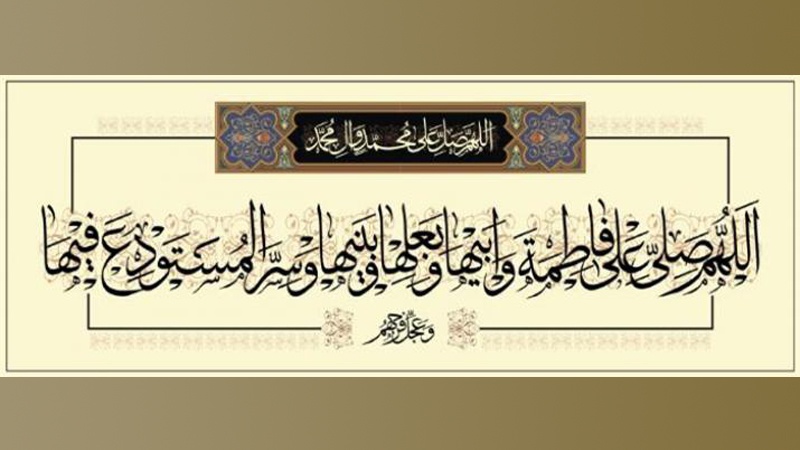 اللهم صل على محمد وال محمد
اَللّهُمَّ صَلِّ عَلی فاطِمَةَ وَ اَبیها وَ بَعْلِها وَ بَنیها وَ سِرِّ الْمُسْتَوْدَعِ فیها
و عجل فرجهم